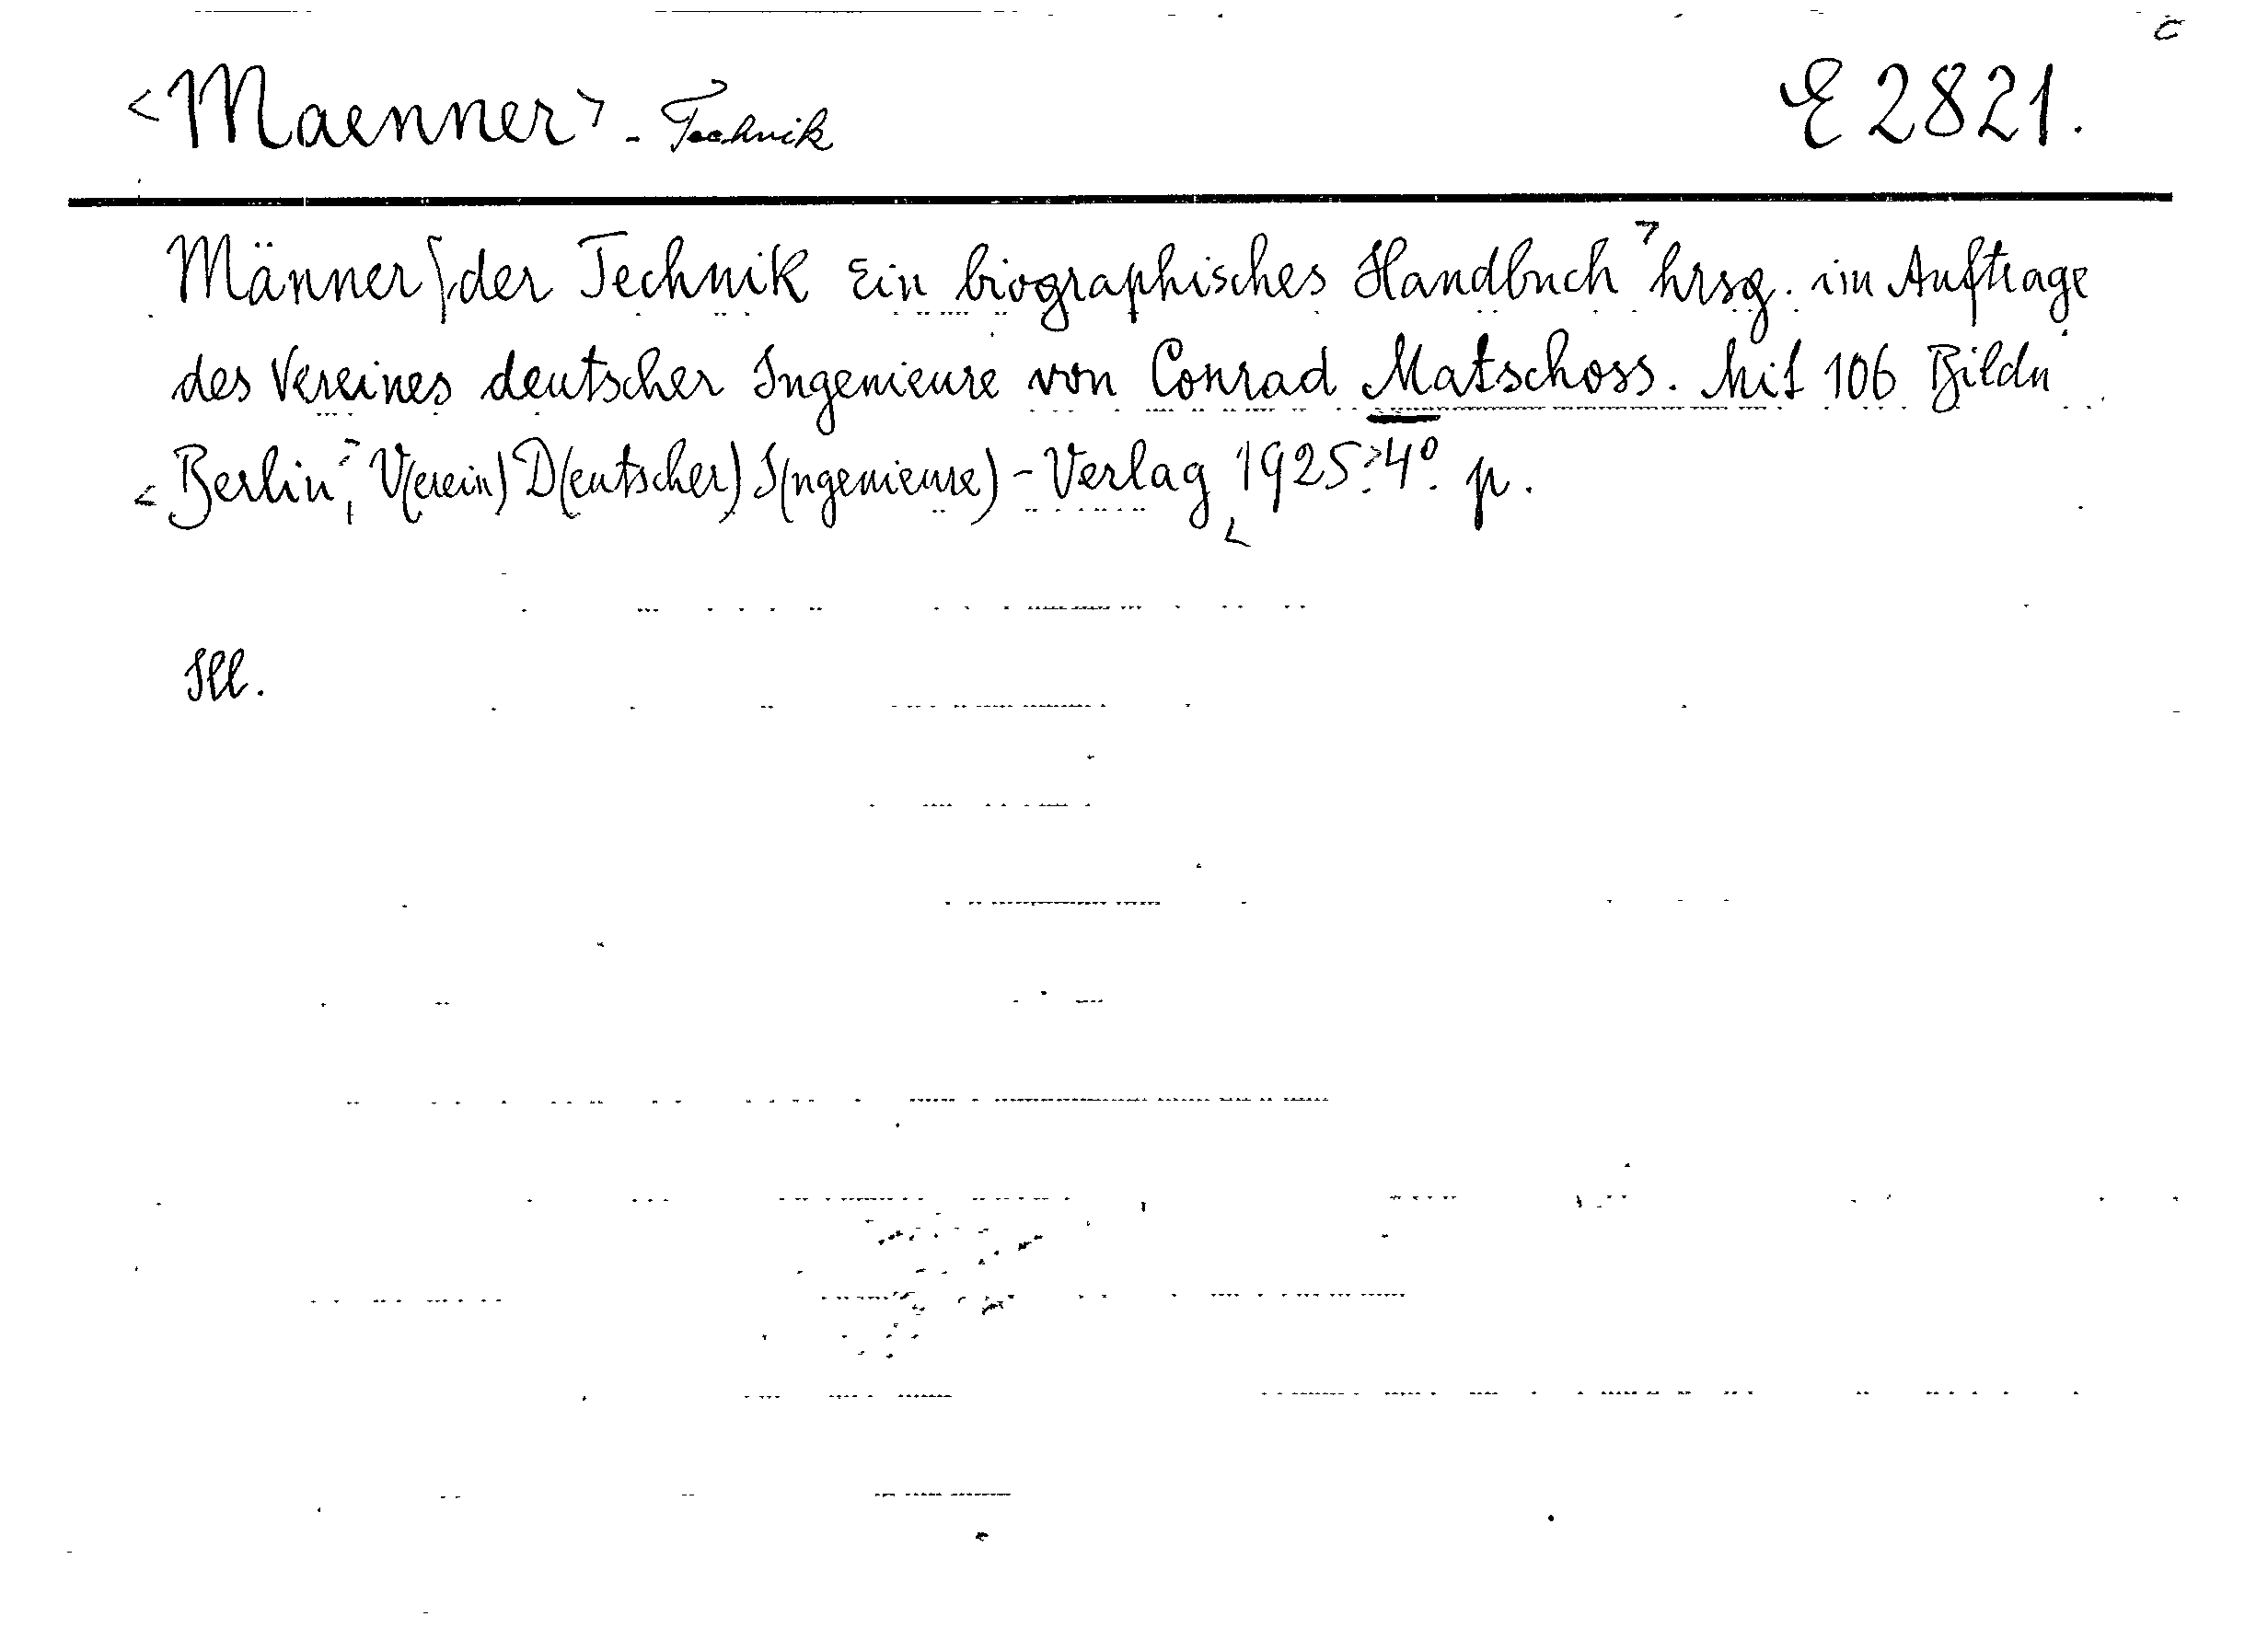 <Maenner> - Technik E 2821.
Männer der Technik Ein biographisches Handbuch> hrsg. im Auftrage
des Vereines deutscher Ingenieure von Conrad Matschoss. Mit 106 Bildn
<Berlin>, V(erein) D(eutscher) I(ngenieure)-Verlag <1925.> 4°. p.
Ill.